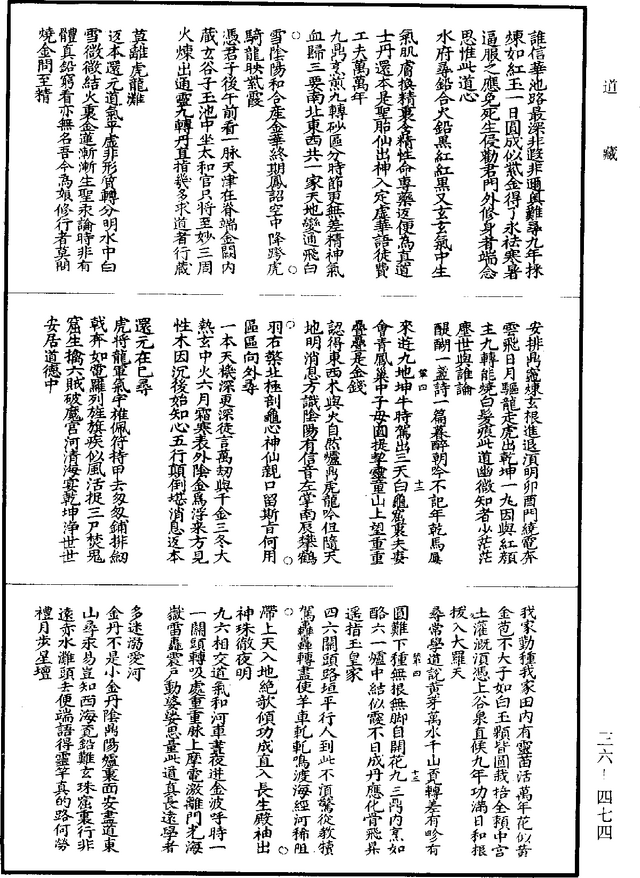 道藏
誰信華池路最深非遐非邇奧難尋九年採
煉如紅玉一日圓成似紫金得了永祛寒暑
逼服之應免死生侵勸君門外修身者端念
思惟此道心
水府尋鉛合火鉛黑紅紅黑又玄玄氣中生
氣肌膚換精裏含精性命專藥返便為真道
士丹還本是聖胎仙出神入定虛華語徒費
工夫萬萬年
九鼎烹煎九轉砂區分時節更無差精神氣
血歸三要南北東西共一家天地變通飛白
雪陰陽和合產金華終期鳳詔空中降跨虎
騎龍映紫霞
憑君子後午前看一脉天津在脊端金闕內
藏玄谷子玉池中坐太和官只將至妙三周
火煉出通靈九轉丹直指幾多求道者行藏
莫離虎龍灘
返本還元道氣平虛非形質轉分明水中白
雪微微結火裏金蓮漸漸生聖汞論時非有
體真鉛窮看亦無名吾今為報修行者莫向
燒金問至精
安排鼎竈煉玄根進退須明卯酉門繞電奔
雲飛日月驅龍走虎出乾坤一九因與紅顏
主九轉能燒白髮痕此道幽微知者少茫茫
塵世與誰論
醍醐一盞詩一篇暮醉朝吟不記年乾馬屢
來遊九地坤牛時駕出三天白龜窟裏夫妻
會青鳳巢中子母圓提挈靈童山上望重重
疊疊是金錢
認得東西木與火自然爐鼎虎龍吟但隨天
地明消息方識陰陽有信音左掌南辰攀鶴
羽右擎北極剖龜心神仙親口留斯旨何用
區區向外尋
一本天機深更深徒言萬劫與千金三冬大
熱玄中火六月霜寒表外陰金爲浮來方見
性木因沉後始知心五行顛倒堪消息返本
還元在已尋
虎將龍軍氣宇雄佩符持甲去匆匆鋪排劒
戟奔如電羅列旌旗疾似風活捉三尸焚鬼
窟生擒六賊破魔宮河清海宴乾坤淨世世
安居道德中
我家勤種我家田內有靈苗活萬年花似黃
金苞不大子如白玉顆皆圓栽培全頼中宮
土灌溉須憑上谷泉直候九年功滿日和根
拔入大羅天
尋常學道說黃芽萬水千山覓轉差有畛有
圓難下種無根無脚自開花九三鼎內烹如
酪六一爐中結似霞不日成丹應化骨飛昇
遥指玉皇家
四六關頭路坦平行人到此不須驚從教犢
駕轟轟轉盡使羊車軋軋鳴渡海經河稀阻
滯上天入地絶欹傾功成直入長生殿袖出
神珠徹夜明
九六相交道氣和河車晝夜迸金波呼時一
一關頭轉吸處重重脉上摩電激離門光海
嶽雷轟震戶動婆娑思量此道真長遠學者
多迷溺愛河
金丹不是小金丹陰鼎陽爐裏面安盡道東
山尋汞易豈知西海覓鉛難玄珠窟裏行非
遠赤水灘頭去便端語得靈竿真的路何勞
禮月步星壇
第四 十三
第四 十三
三六－四七四